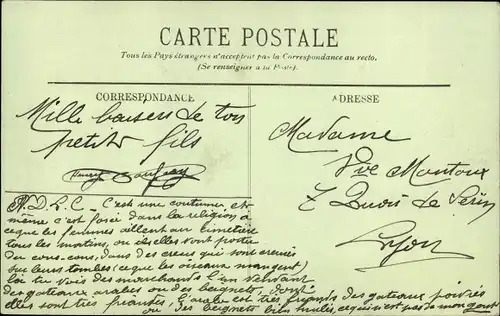 CARTE POSTALE
Tous les Pays étrangers n'acceptent pas la Correspondance au recto.
(Se renseigner à la Poste).
CORRESPONDANCE
ADRESSE
Mille baisers de ton
petits fils
Henry
Madame
Vve Montoux
7 Quai de Serin
Lyon
N.D.L.C - C'est une coutume, et
même c'est forcé dans la religion à
ceque les femmes aillent au cimetière
tous les matins, ou elles vont porter
du cous-cous, dans des creux qui sont creusés
sur leurs tombes (ce que les oiseaux mangent)
la tu vois des marchands l'un vendant
des gateaux arabes ou des beignets, dont
elles sont très friandes, l'arabe est très friands des gateaux poivrés
ou des beignets bien huilés, ce qui n'est pas de mon gout